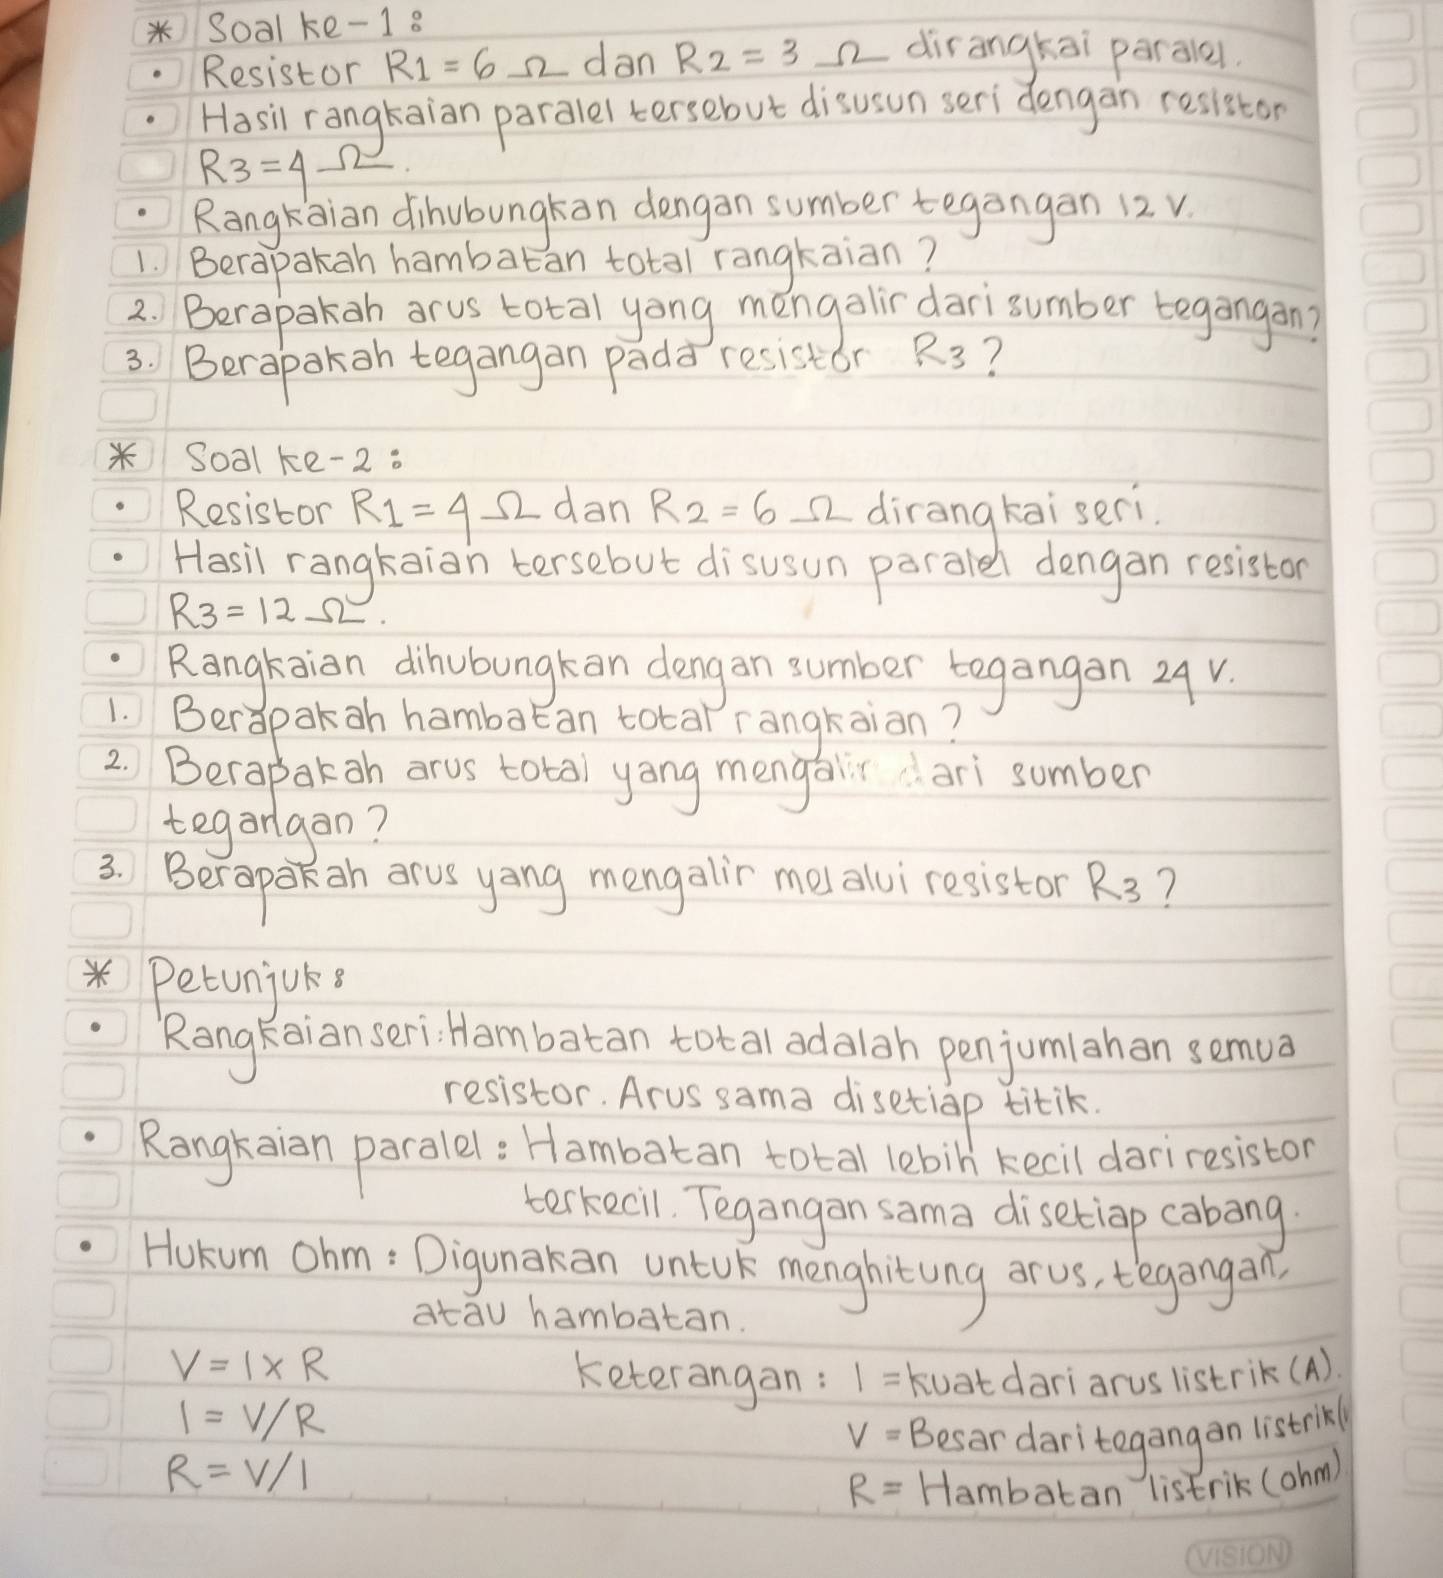 * Soal ke-1 :
• Resistor R1 = 6 Ω dan R2 = 3 Ω dirangkai paralel.
• Hasil rangkaian paralel tersebut disusun seri dengan resistor
R3 = 4 Ω.
• Rangkaian dihubungkan dengan sumber tegangan 12 V.
1. Berapakah hambatan total rangkaian?
2. Berapakah arus total yang mengalir dari sumber tegangan?
3. Berapakah tegangan pada resistor R3?
* Soal ke-2 :
• Resistor R1 = 4 Ω dan R2 = 6 Ω dirangkai seri.
• Hasil rangkaian tersebut disusun paralel dengan resistor
R3 = 12 Ω.
• Rangkaian dihubungkan dengan sumber tegangan 24 V.
1. Berapakah hambatan total rangkaian?
2. Berapakah arus total yang mengalir dari sumber
tegangan?
3. Berapakah arus yang mengalir melalui resistor R3?
* Petunjuk :
• Rangkaian seri : Hambatan total adalah penjumlahan semua
resistor. Arus sama disetiap titik.
• Rangkaian paralel : Hambatan total lebih kecil dari resistor
terkecil. Tegangan sama disetiap cabang.
• Hukum Ohm : Digunakan untuk menghitung arus, tegangan,
atau hambatan.
V = I x R Keterangan : I = kuat dari arus listrik (A).
I = V/R V = Besar dari tegangan listrik (
R = V/I R = Hambatan listrik (ohm)
VISION